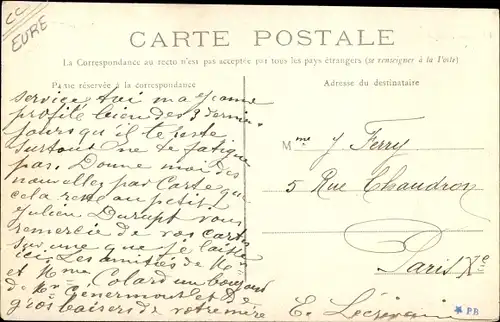 CC
EURE
CARTE POSTALE
La Correspondance au recto n'est pas acceptée par tous les pays étrangers (se renseigner à la Poste)
Partie réservée à la correspondance
Adresse du destinataire
service ma
profite bien des 3 derniers
jours qu'il te reste
surtout ne te fatigue
pas. Donne moi des
nouvelles par Carte que
cela reste au petit
Julien Durupt vous
remercie de vos cartes
sur une que je laisse
ici. Les amitiés de Mr
et Mme Colard un bonjour
de Mr et de
gros baisers de votre mère
Mme J Ferry
5 Rue Chaudron
Paris Xe
E. Lécrivain
PB